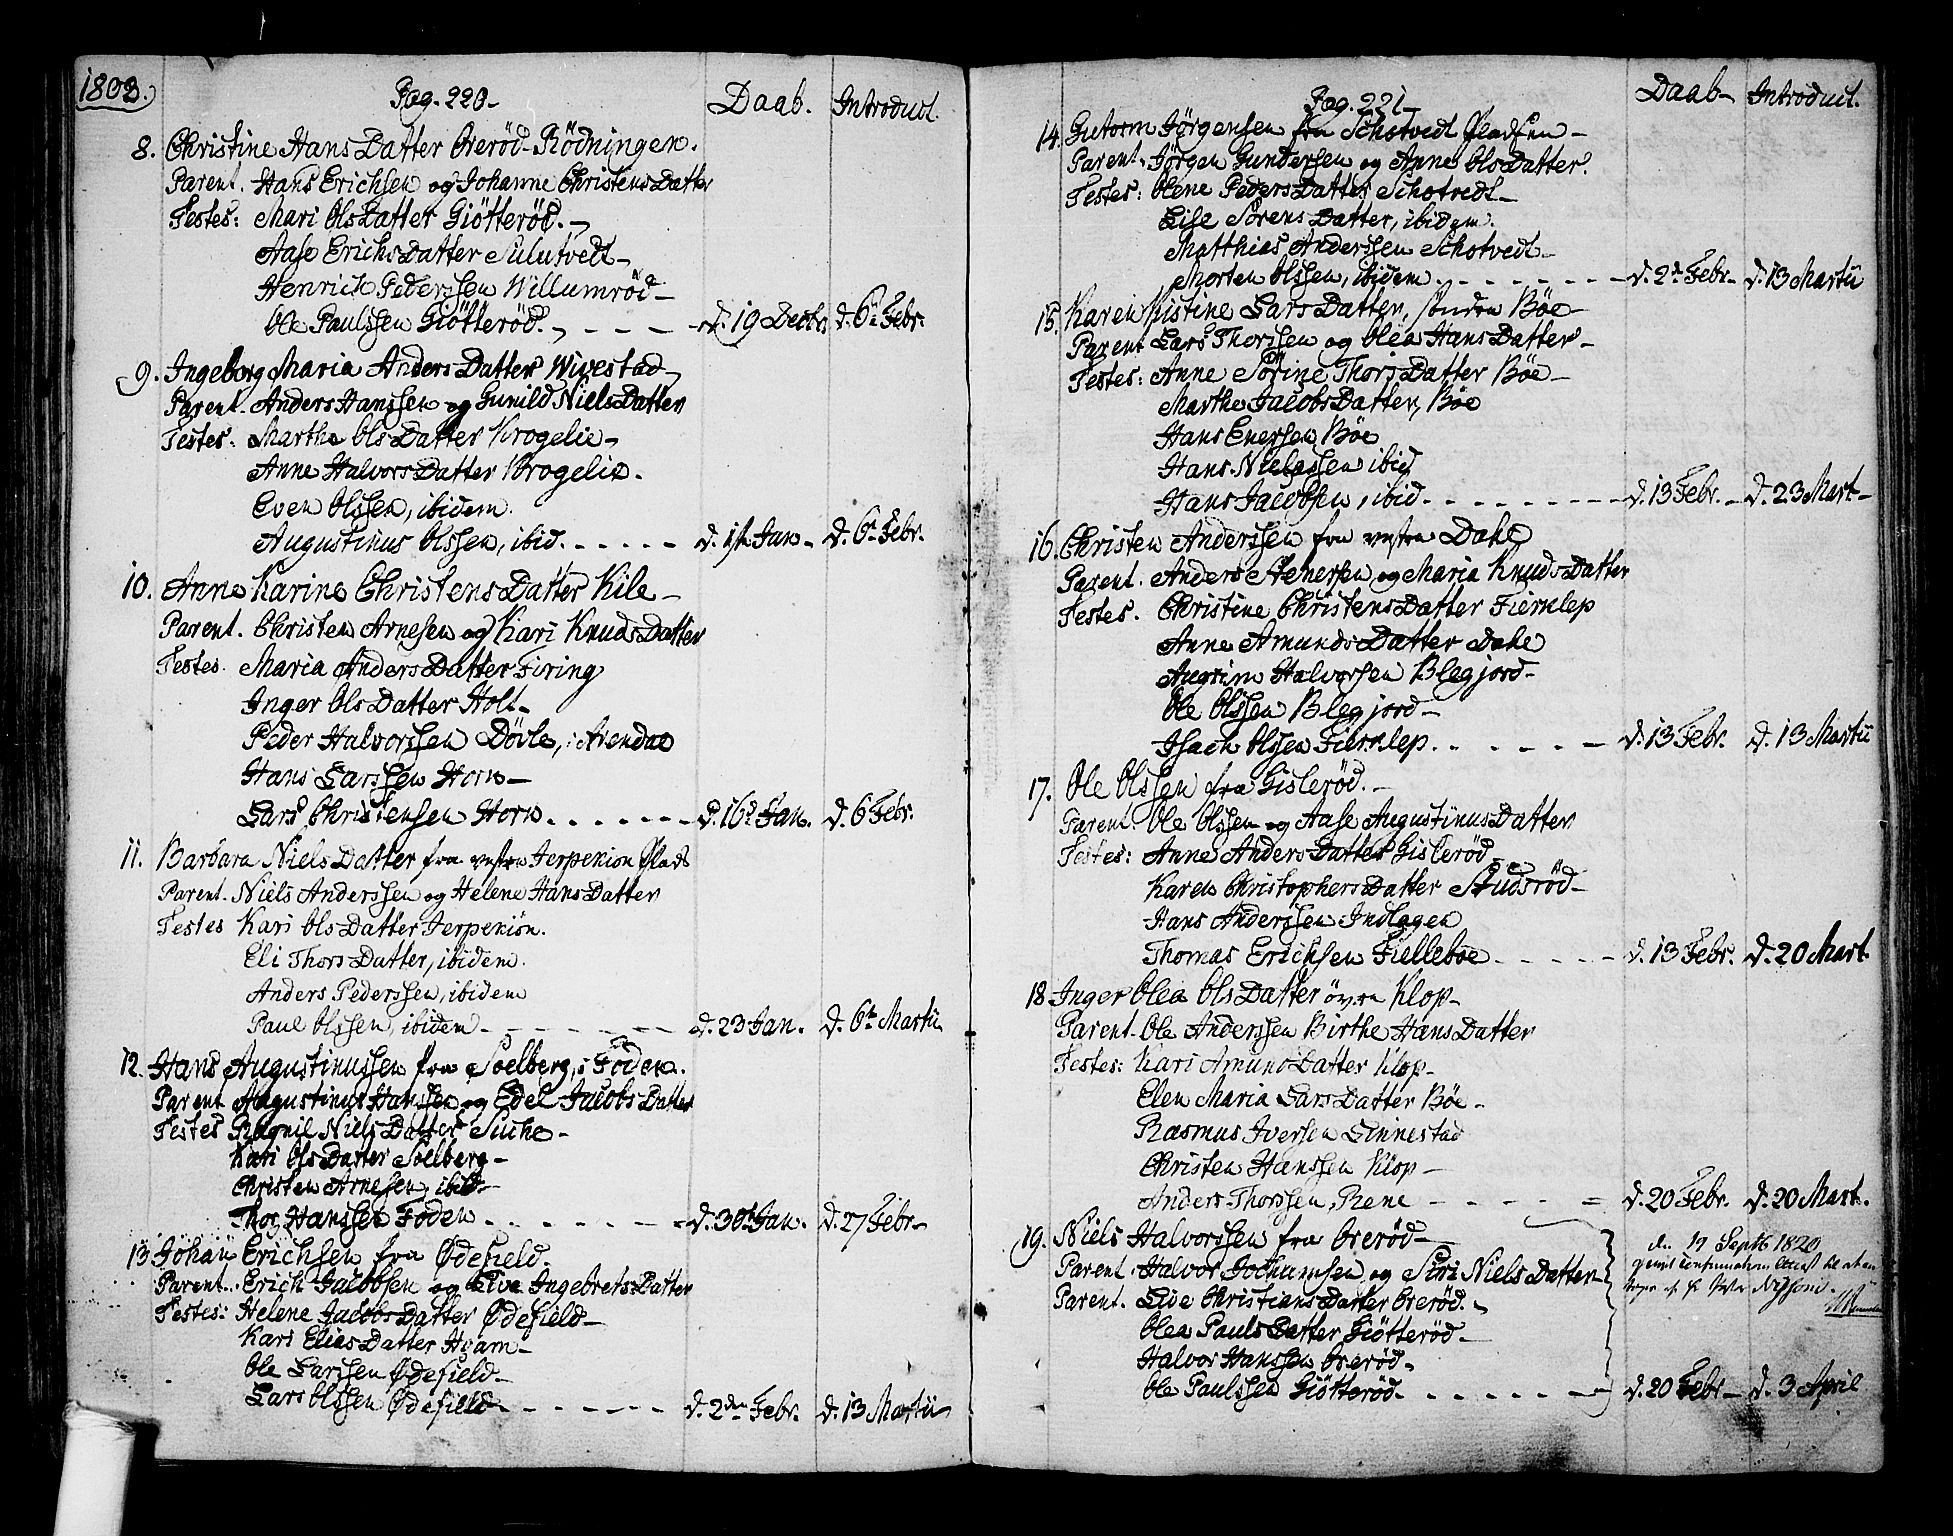 1803.
Pag. 220-
Daab. Introduct.
8. Christine Hans Datter Oreröd-Rödningen.
Parent. Hans Erichsen og Johanne Christens Datter
Testes: Mari Ols Datter Giötteröd.-
Aase Erichs Datter Sulutvedt-
Henrich Pederssen Willumröd-
Ole Paulssen Giötteröd. - - - - d. 19 Decbr. d. 6te Febr.
9. Ingeborg Maria Anders Datter Wivestad-
Parent. Anders Hanssen og Gunild Niels Datter
Testes. Marthe Ols Datter Krogelie-
Anne Halvors Datter Krogelie.
Even Olssen, ibidem.
Augustinus Olssen, ibid. - - - - d. 1ste Jan- d. 6te Febr.
10. Anne Karine Christens Datter Kile-
Parent. Christen Arnesen og Kari Knuds Datter
Testes. Maria Anders Datter Firing
Inger Ols Datter Holt-
Peder Halvorssen Dövle, i Arendal
Hans Larssen Horn-
Lars Christensen Horn. - - - - d. 16de Jan. d. 6 Febr.
11. Barbara Niels Datter fra vestre Jerpekiön Plads
Parent. Niels Anderssen og Helene Hans Datter
Testes Kari Ols Datter Jerpekiön.
Eli Thors Datter, ibidem.
Anders Pederssen, ibidem
Paul Olssen, ibidem - - - - d. 23 Jan. d. 6te Martii
12. Hans Augustinussen fra Soelberg, i Foden.
Parent Augustinus Hanssen og Edel Jacobs Datter
Testes Ragnil Niels Datter Suche-
Kari Ols Datter Soelberg-
Christen Arnesen, ibid-
Thor Hanssen Foden. - - - - d. 30te Jan. d. 27 Febr-
13 Johan Erichsen fra Ødefield.
Parent. Erich Jacobsen og Live Ingebrets Datter
Testes: Helene Jacobs Datter Ødefield-
Kari Elias Datter Hyam-
Ole Larssen Ødefield-
Lars Olssen Ødefield - - - - d. 2den Febr. d. 13 Martii
Pag. 221-
Daab- Introduct.
14. Gutorm Jörgensen fra Schotvedt Pladsen-
Parent. Jörgen Gundersen og Anne Ols Datter.
Testes: Olene Peders Datter Schotvedt-
Lise Sörens Datter, ibidem.
Matthias Anderssen Schotvedt-
Morten Olssen, ibidem. - - - - d. 2de Febr- d. 13 Martii
15. Karen Kistine Lars Datter, söndre Böe-
Parent Lars Thorssen og Olea Hans Datter-
Testes: Anne Sörine Thors Datter Böe-
Marthe Jacobs Datter, Böe
Hans Enersen Böe
Hans Nielssen ibid
Hans Jacobsen, ibid. - - - - d. 13 Febr.- d. 23 Mart-
16. Christen Anderssen fra vestre Dahl
Parent. Anders Aenersen og Maria Knuds Datter
Testes. Christine Christens Datter Fiernlep
Anne Amunds Datter Dahl
Augrim Halvorssen Blegjord-
Ole Olssen Blegjord-
Isach Olssen Fiernlep. - - - - d. 13 Febr. d. 13 Martii
17. Ole Olssen fra Gisleröd.-
Parent. Ole Olssen og Aase Augustinus Datter
Testes: Anne Anders Datter Gisleröd
Karen Christophers Datter Studsröd-
Hans Anderssen Indlagen
Thomas Erichsen Fielleboe - - - - d. 13 Febr. d. 20 Mart.
18 Inger Olea Ols Datter övre Klop-
Parent. Ole Anderssen Birthe Hans Datter
Testes: Kari Amund Datter Klop-
Elen Maria Lars Datter Böe-
Rasmus Iversen Linnestad
Christen Hanssen Klop-
Anders Thorssen, Rene - - - - d. 20 Febr. d. 20 Mart.
19. Niels Halvorssen fra Oreröd-
Parent. Halvor Jochumsen og Siri Niels Datter-
Parent. Live Christians Datter Oreröd.-
Olea Pauls Datter Giötteröd-
Halvor Hanssen Oreröd-
Ole Paulssen Giötteröd. - - - - d. 20 Febr- d. 3 April
den 19 Septb 1820